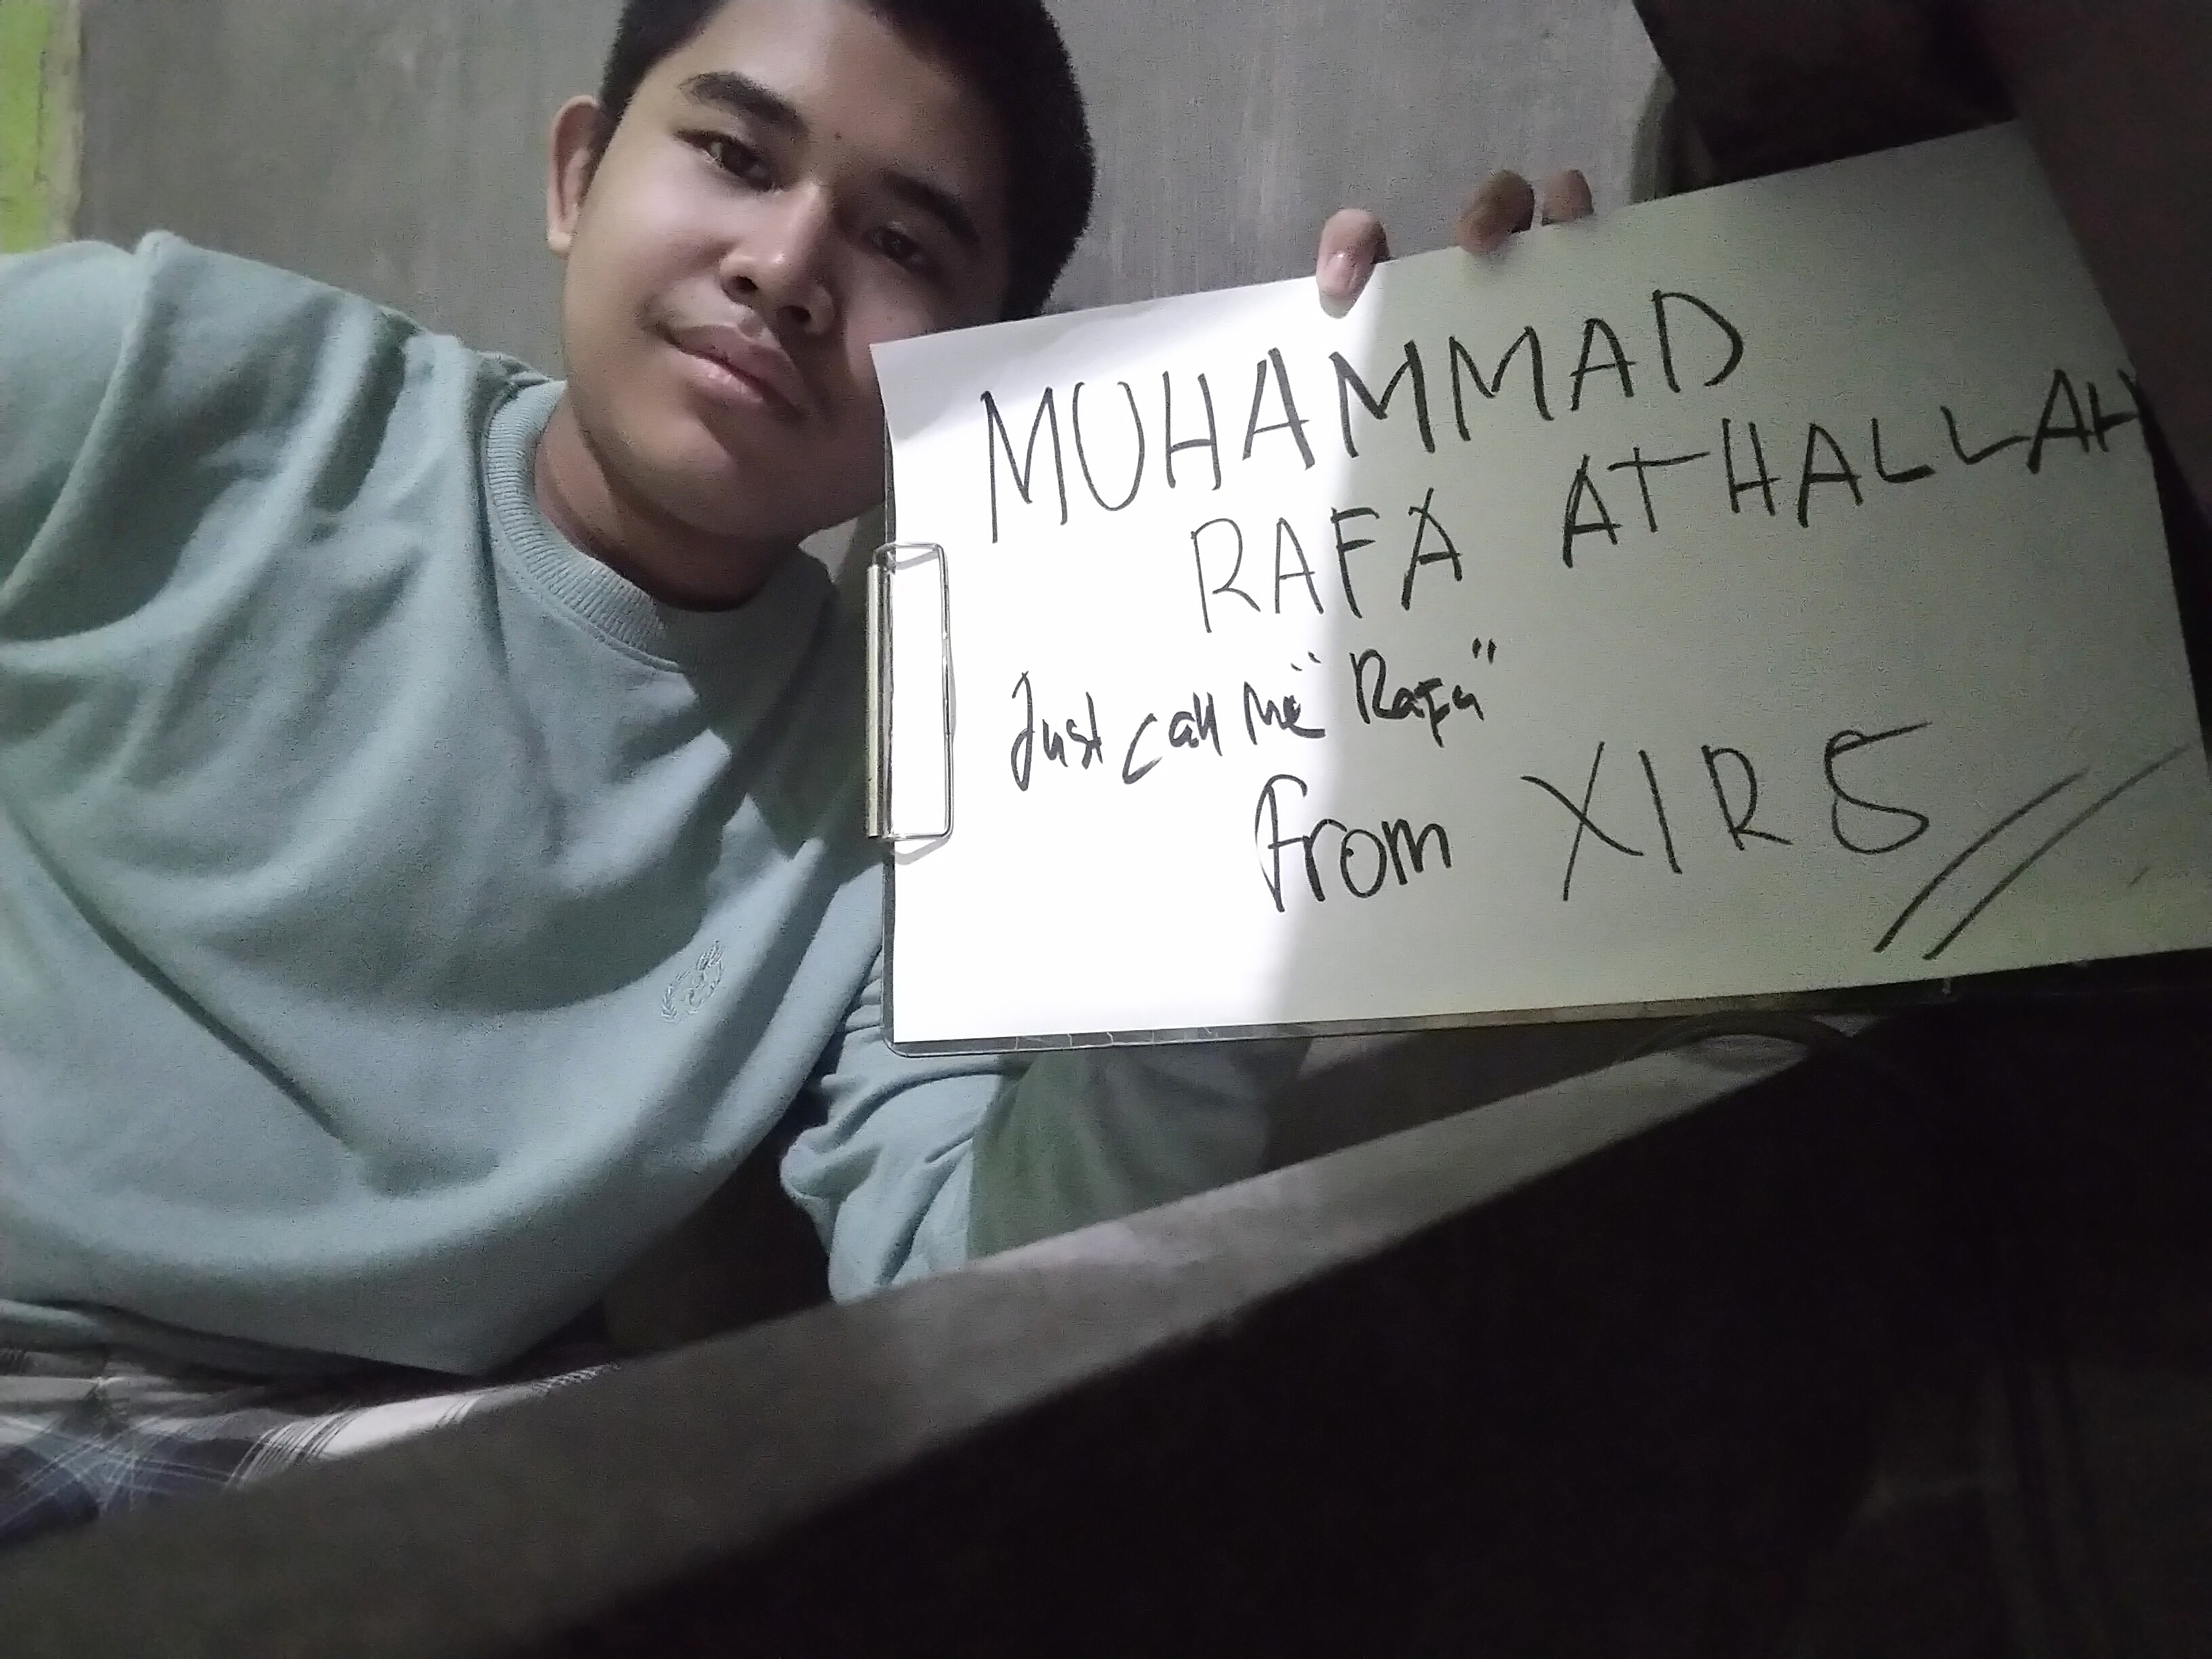 MUHAMMAD
RAFA ATHALLAH
Just call me "Rafa"
From XI R 5